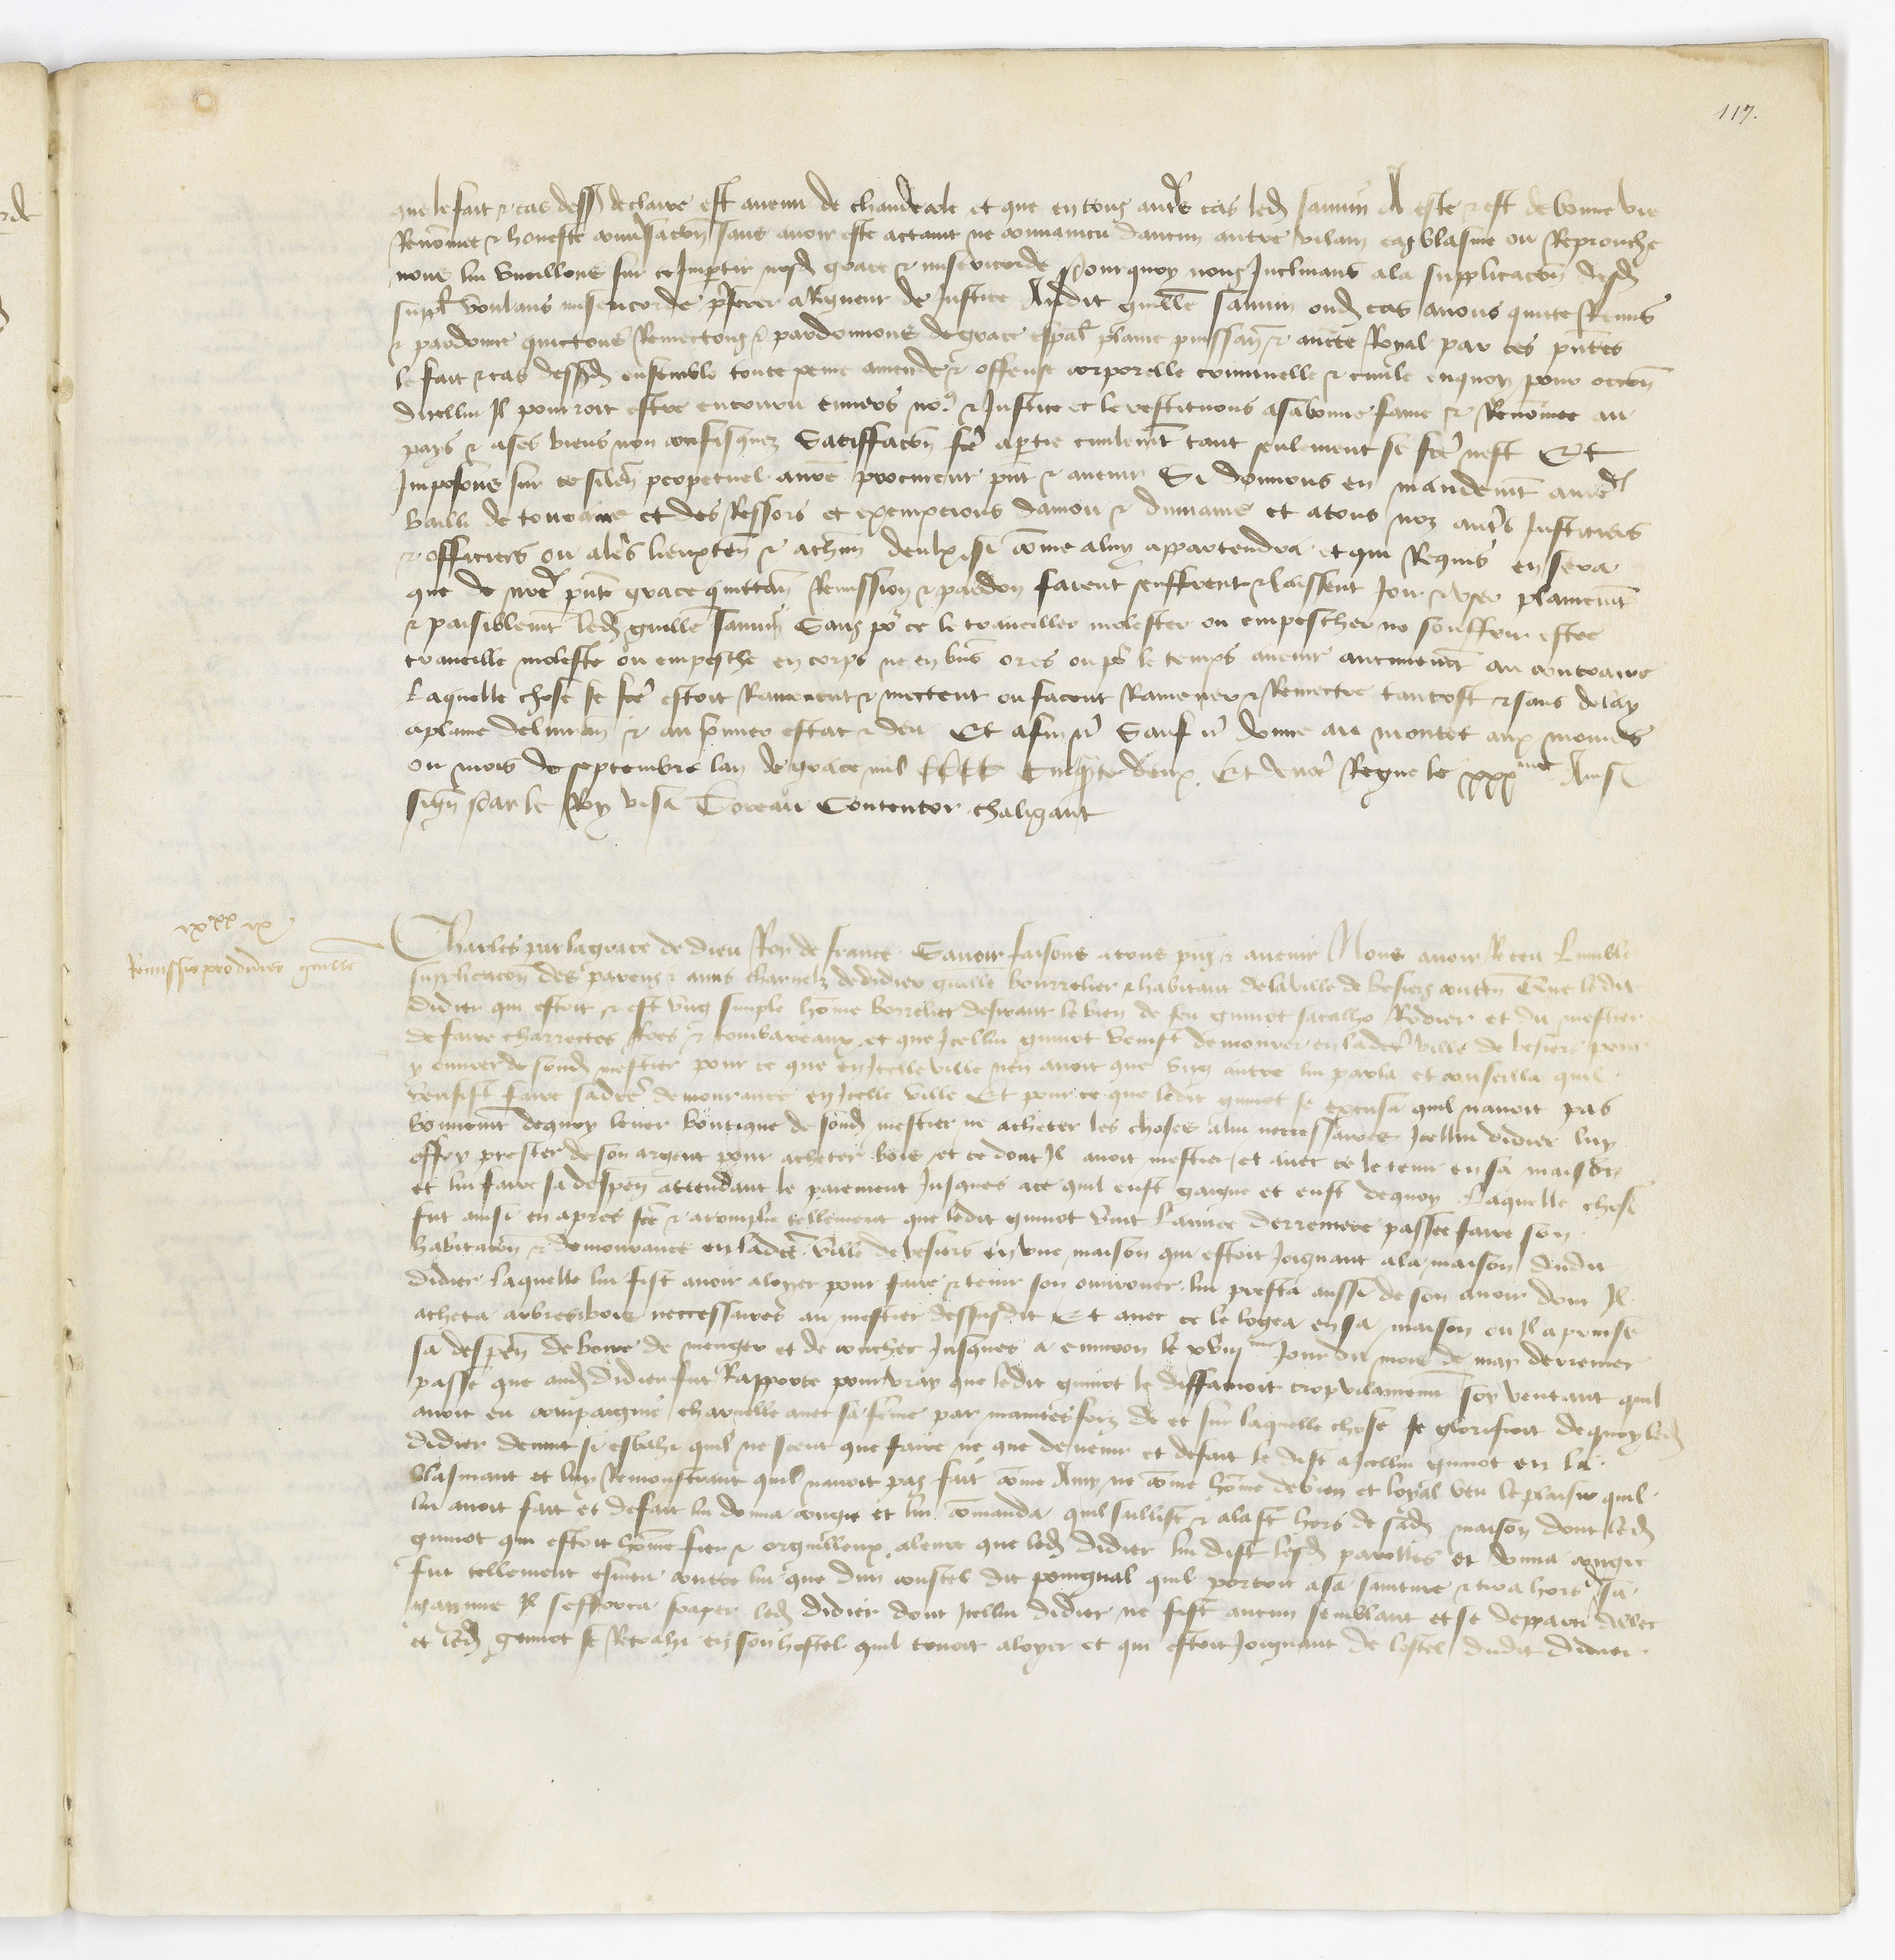 117.
que le fait & cas dess declaire est avenu de chaudecole et que en tous autres cas led Januin A este & est de bonne vie
Renommee & honeste conversacion sans avoir este actaint ne convaincu daucun autre vilain cas blasme ou Reprouche
nous lui vueillons sur ce Impartir nosd grace & misericorde Pourquoy nous Inclinans ala supplicacion desd
suppl voulans misericorde preferer a Rigueur de Justice Audit guille Januin oud cas avons quicte Remis
& pardonne quictons Remectons & pardonnons de grace especial plaine puissance & auctorite Royal par ces presentes
le fait & cas dessusd ensemble toute peine amende & offense corporelle criminelle & civile enquoy pour occasion
dicellui Il pourroit estre encouru envers nous & Justice et le restituons asabonne fame & Renommee au
pays & ases biens non confisquez Satisfacion fte apartie civilement tant seulement se fte nest Et
Imposons sur ce silence perpetuel anre procureur present & avenir Si donnons en mandement aure
bailli de touraine et des Ressors et exempcions danjou & du maine et atous noz autres Justiciers
& officiers ou aleurs lieuxten & achun deulx si comme aluy appartendra et qui Requis en sera
que de nre pnte grace quittance Remission & pardon facent seuffrent & laissent Joir & user plainement
& paisiblement led guille Januin Sans pour ce le travailler molester ou empescher ne souffrir estre
travaille moleste ou empesche en corps ne en biens ores ou pour le temps avenir aucunement au contraire
Laquelle chose se fte estoit Ramenent & mectent ou facent Ramener & Remectre tantost & sans delay
aplaine delivrance & au premier estat & deu Et afin &c Sauf &c donne au montet aux moines
ou mois de septembre lan de grace mil CCCC Cinquante deux Et de nre Regne le xxxme Ainsi
signe Par le Roy visa Coreau Contentor chaligant
ixxx ix
Remissio pro didier guille
Charles par la grace de dieu Roy de france Savoir faisons atous pns & avenir Nous avoir Receu Lumble
supplicacion des parens & amis charnelz de didier guille bourrelier & habitant delaville de besiers conten Que ledit
didier qui estoit & est ung simple homme borrelier desirant le bien de feu guiuot sacalho Rodier et du mestier
de faire charrectes Roes & tombareaux et que Icellui guiuot venist demourer en ladte ville de besiers pour
y ouvrer de soud mestier pour ce que en Icelle ville nen avoit que ung autre lui parla et conseilla quil
vensist faire sadte demourance en Icelle ville Et pour ce que ledit guiuot se excusa quil navoit pas
bonnement dequoy lever boutique de soud mestier ne acheter les choses alui necessaires Icellui didier luy
offry prester de son argent pour acheter bois et ce dont Il avoit mestier et avec ce le tenir en sa maison
et lui faire sa despen attendant le paiement Jusques ace quil eust gaigne et eust dequoy Laquelle chose
fut ainsi en apres fte & acomplie tellement que ledit guiuot vint Lannee derreniere passee faire son
habitacion & demourance en ladte ville de besiers en une maison qui estoit Joignant ala maison dudit
didier laquelle lui fist avoir aloyer pour faire & tenir son ouvrouer lui presta aussi de son avoir dont Il
acheta arbres bois neccessaires au mestier dessusdit Et avec ce le logea en sa maison ou Il a prinse
sa despen de boire de menger et de coucher Jusques a environ le xviijme Jour du mois de may derrenier
passe que aud didier fut Rapporte pour vray que ledit guiuot le diffamoit trop vilainement soy ventant quil
avoit eu compaignie charnelle avec sa femme par maintesfoiz de et sur laquelle chose se glorifioit dequoy led
didier devint si esbahi quil ne sceut que faire ne que devenir et defait le dist a Icellui guiuot en le
blasmant et luy Remonstrant quil navoit pas fait comme Amy ne comme homme debien et loyal veu leplaisir quil
lui avoit fait et defait lui donna congie et lui commanda quil saillist & alast hors de sad maison dont led
guiuot qui estoit homme fier & orguilleux aleure que led didier lui dist lesd parolles et donna congie
fut tellement esmeu contre lui que dun coustel dit poingnal quil portoit asa sainture & tira hors sa
gaynne Il sefforca fraper led didier dont Icellui didier ne fist aucun semblant et se departi dillec
et led guiuot se Retrahi en son hostel quil tenoit aloyer et qui estoit Joignant de lostel dudit didier